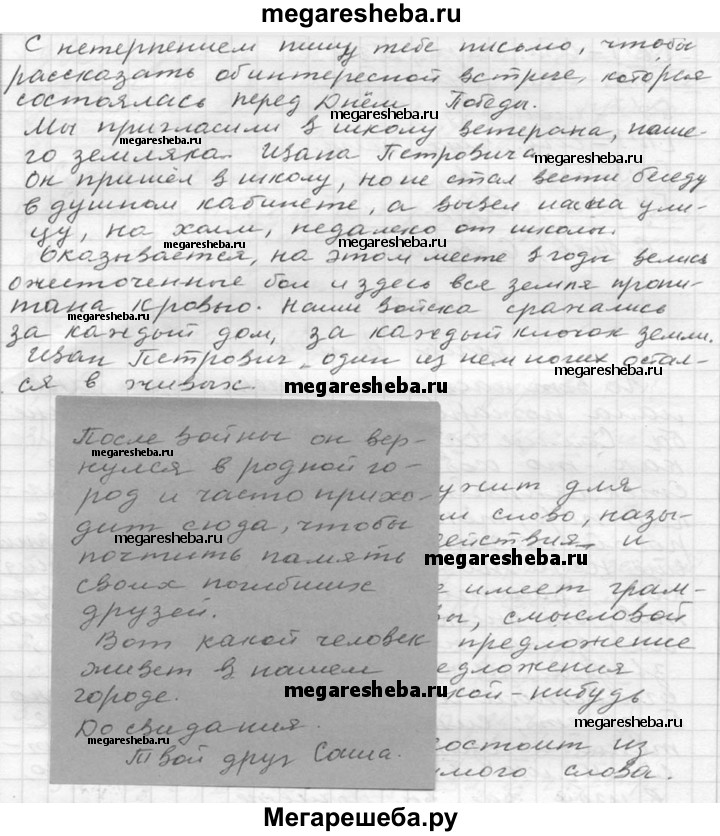 megaresheba.ru
С нетерпением пишу тебе письмо, чтобы
рассказать об интересной встрече, которая
состоялась перед Днём Победы.
megaresheba.ru
Мы пригласили в школу ветерана, наше-
го земляка. Ивана Петровича
megaresheba.ru
megaresheba.ru
Он пришёл в школу, но не стал вести беседу
megaresheba.ru
в душном кабинете, а вывел нас на ули-
цу, на холм, недалеко от школы.
megaresheba.ru
megaresheba.ru
Оказывается, на этом месте в годы велись
ожесточенные бои и здесь вся земля пропи-
тана кровью. Наши войска сражались
megaresheba.ru
за каждый дом, за каждый клочок земли.
Иван Петрович один из немногих остал-
ся в живых.
megaresheba.ru
megaresheba.ru
После войны он вер-
нулся в родной го-
род и часто прихо-
дит сюда, чтобы
megaresheba.ru
почтить память
своих погибших
друзей.
Вот какой человек
живет в нашем
городе.
До свидания.
megaresheba.ru
Твой друг Саша.
ужит для
м слово, назы-
ействия и
megaresheba.ru
е имеет грам-
вы, смысловой
megaresheba.ru
предложение
едложения
megaresheba.ru
кой-нибудь
megaresheba.ru
состоит из
мого слова.
Мегарешеба.ру